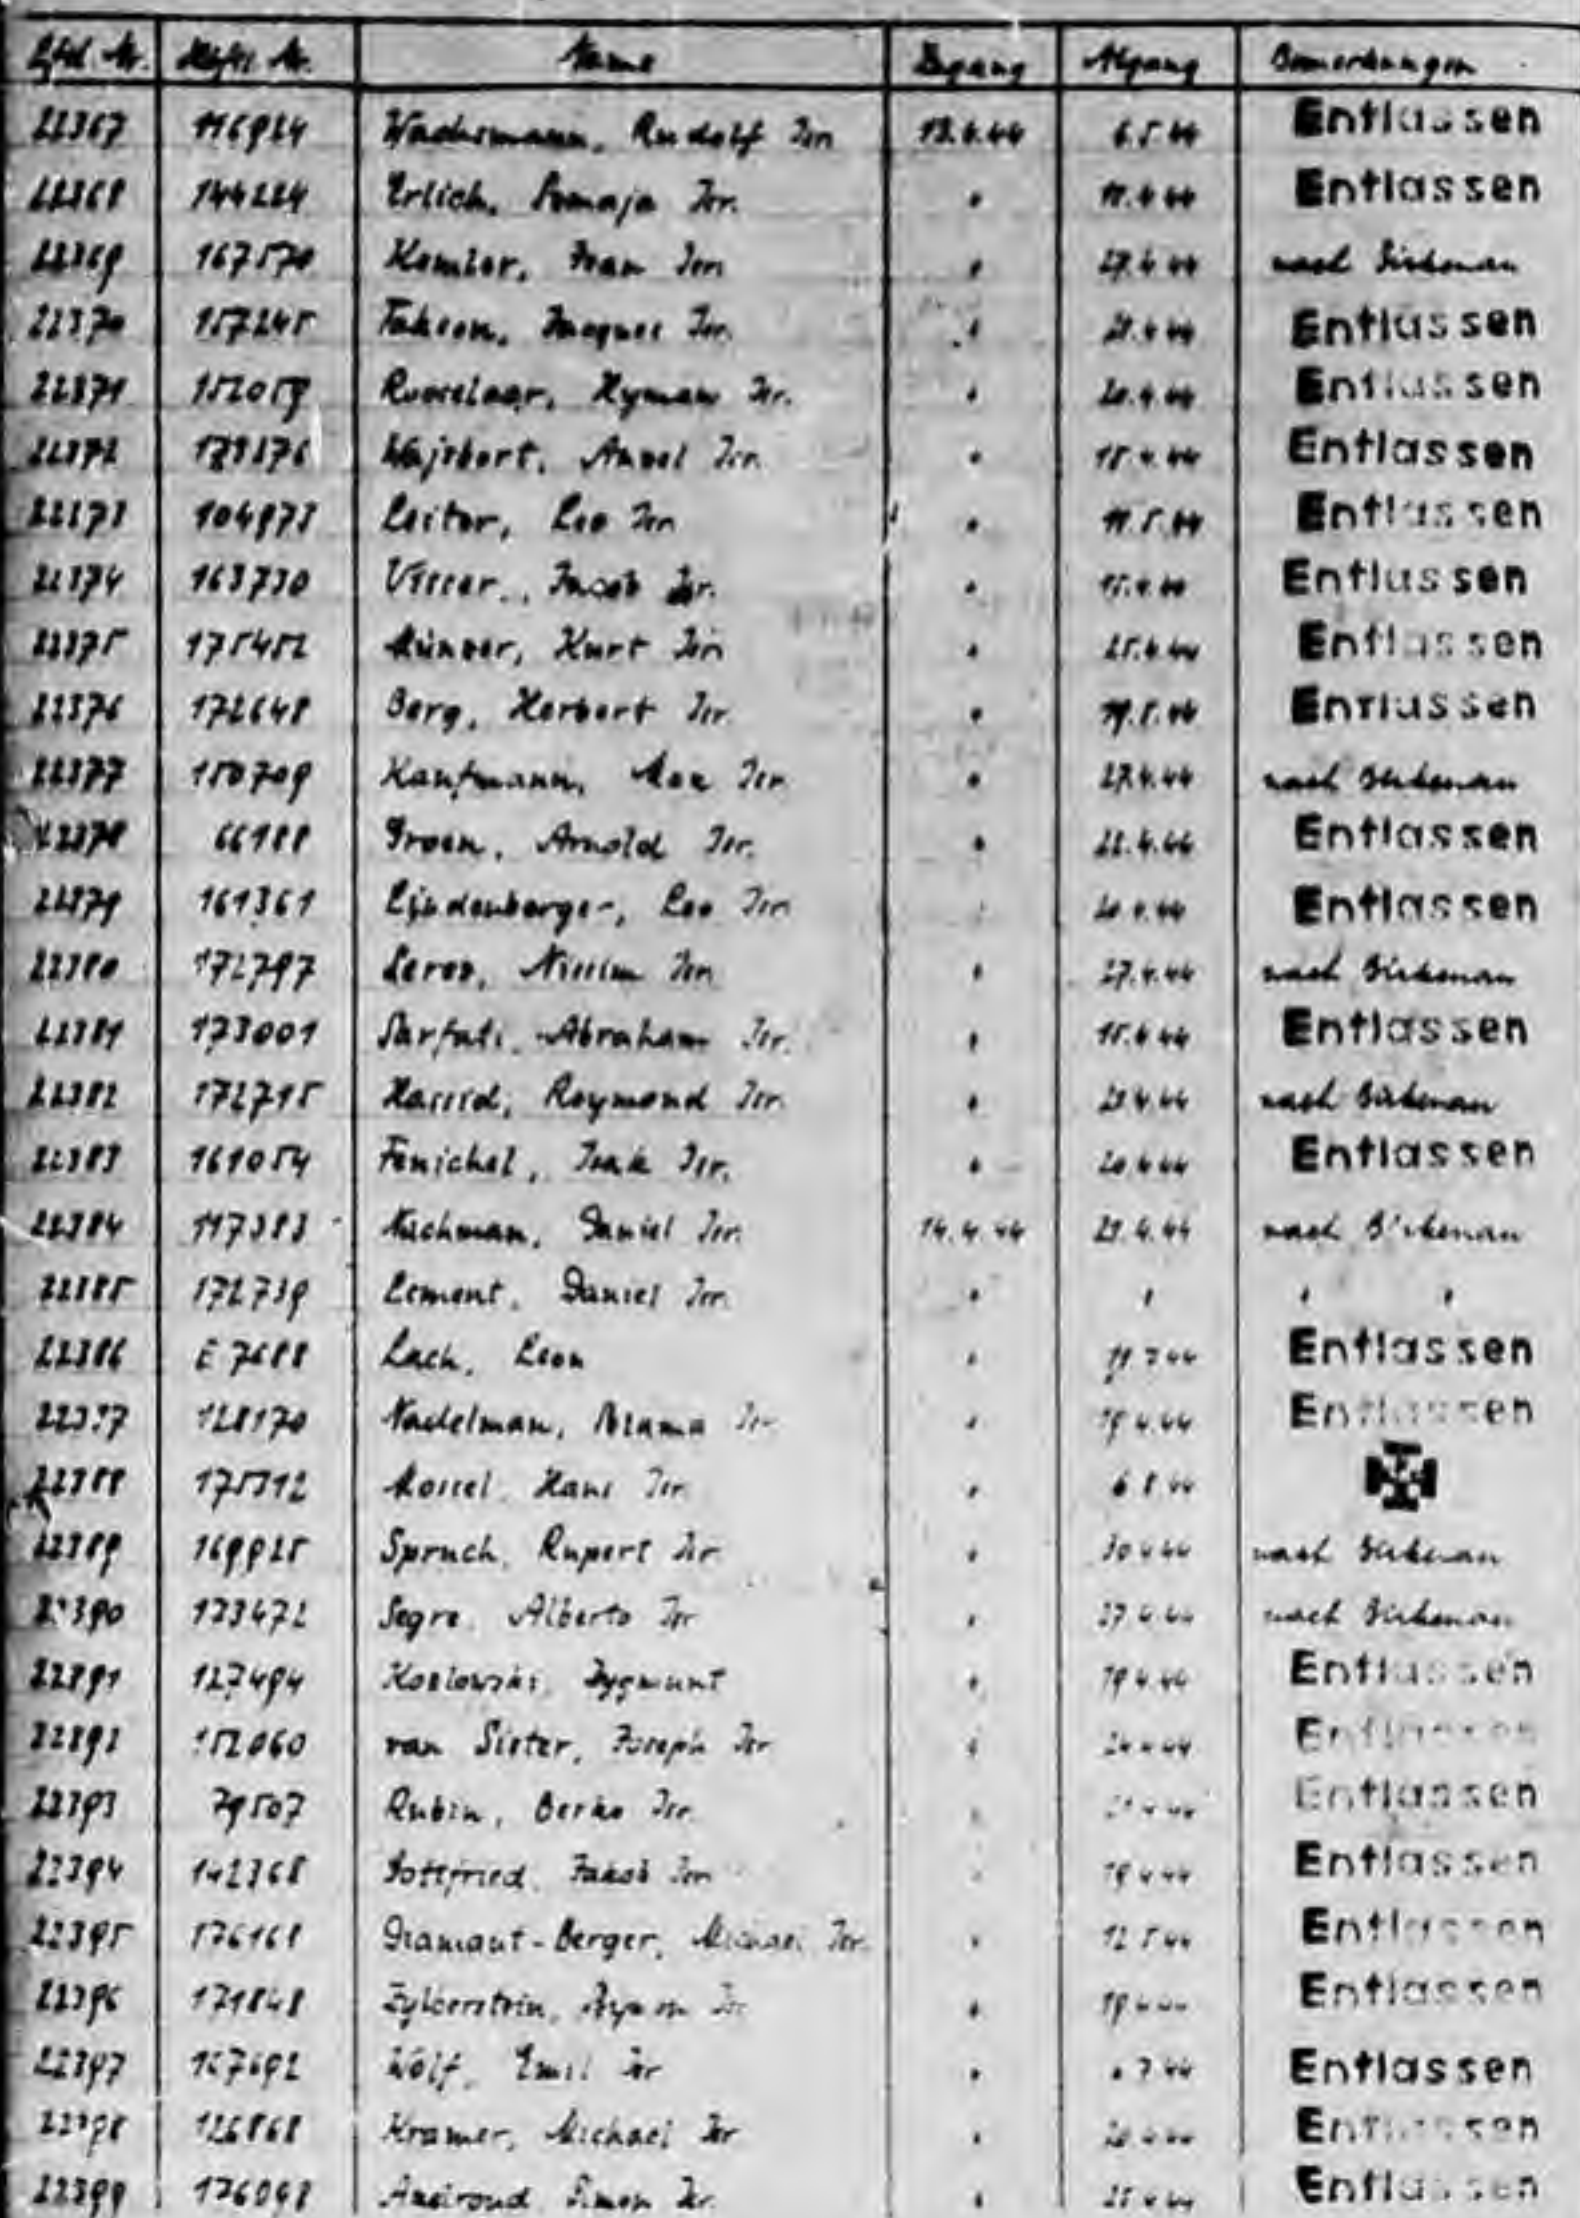 Lfd. Nr. Häftl. Nr. Name Zugang Abgang Bemerkungen
22367 116924 Wachsmann, Rudolf Isr. 13.4.44 6.5.44 Entlassen
22368 144224 Erlich, Isr. " 11.4.44 Entlassen
22369 167570 Isr. " 27.4.44 nach Birkenau
22370 157245 Jacques Isr. " 21.4.44 Entlassen
22371 152059 Rooselaar, Hyman Isr. " 20.4.44 Entlassen
22372 Wajsbort, Isr. " 15.4.44 Entlassen
22373 104973 Leitor, Leo Isr. " 11.5.44 Entlassen
22374 163730 Visser, Jacob Isr. " 15.4.44 Entlassen
22375 175452 Münzer, Kurt Isr. " 25.4.44 Entlassen
22376 172648 Berg, Herbert Isr. " 19.5.44 Entlassen
22377 150709 Kaufmann, Max Isr. " 27.4.44 nach Birkenau
22378 66188 Groen, Arnold Isr. " 22.4.44 Entlassen
22379 161361 Lindenberger, Leo Isr. " 20.4.44 Entlassen
22380 172797 Nissim Isr. " 27.4.44 nach Birkenau
22381 173001 Sarfati, Abraham Isr. " 15.4.44 Entlassen
22382 172715 Hassid, Raymond Isr. " 29.4.44 nach Birkenau
22383 161054 Fenichel, Isak Isr. " 20.4.44 Entlassen
22384 117383 Nachman, Daniel Isr. 14.4.44 29.4.44 nach Birkenau
22385 172739 Lement, Daniel Isr. " " " "
22386 E 7688 Lach, Leon " 11.7.44 Entlassen
22387 128170 Nadelman, Isr. " 19.4.44 Entlassen
22388 175312 Mossel, Hans Isr. " 6.8.44
22389 169925 Spruch, Rupert Isr. " 30.4.44 nach Birkenau
22390 173472 Segre, Alberto Isr. " 27.4.44 nach Birkenau
22391 127494 Kozlowski, Zygmunt " 19.4.44 Entlassen
22392 152060 van Sister, Joseph Isr. " 24.4.44 Entlassen
22393 79507 Rubin, Berko Isr. " Entlassen
22394 142368 Gottfried, Jakob Isr. " 19.4.44 Entlassen
22395 176168 Diamant-Berger, Michael Isr. " 12.5.44 Entlassen
22396 171848 Zylberstein, Szymon Isr. " 19.4.44 Entlassen
22397 167692 Wolf, Emil Isr. " Entlassen
22398 126868 Kramer, Michael Isr. " 20.4.44 Entlassen
22399 176098 Simon Isr. " 25.4.44 Entlassen